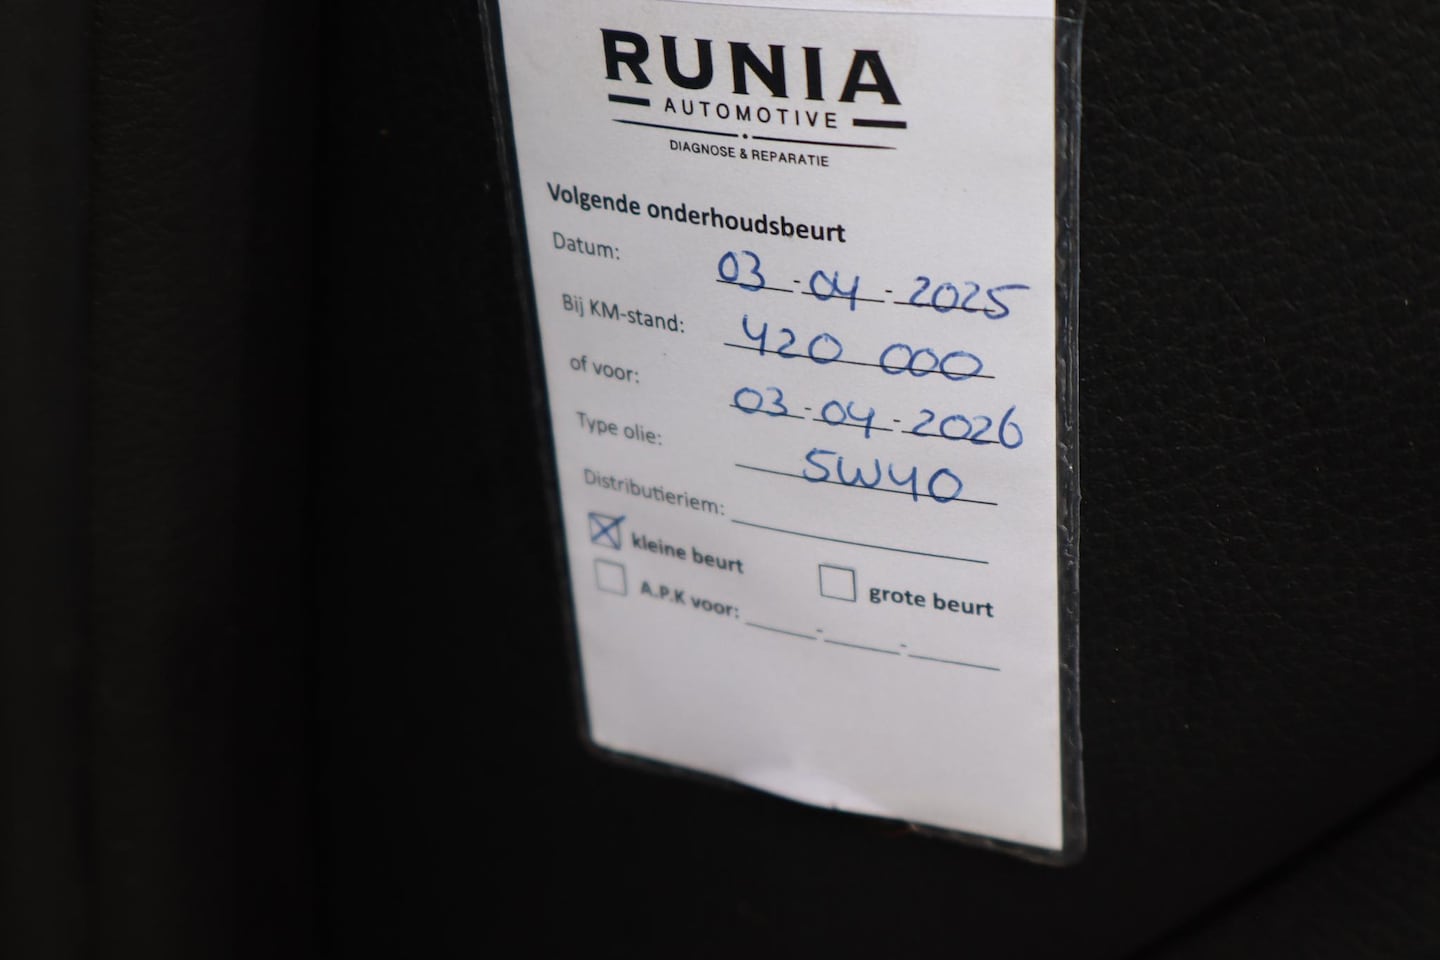 RUNIA
AUTOMOTIVE
DIAGNOSE & REPARATIE
Volgende onderhoudsbeurt
Datum: 03-04-2025
Bij KM-stand: 420 000
of voor: 03-04-2026
Type olie: 5W40
Distributieriem:
kleine beurt grote beurt
A.P.K voor: - -